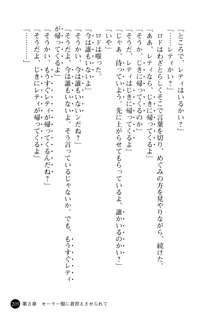 「ところで、レティはいるかい?」
「……レティかい?」
ロドはわざとらしくそこで言葉を切り、めぐみの方を見やりながら、続けた。
「ああ、レティなら、じきに帰ってくるよ」
「そうかい、じきに帰ってくるのかい」
「じゃあ、待っていようか。先に上がらせてもらっているよ。誰かいるのかい?」
ロドは喋った。
「今は誰もいないよ」
「今は誰もいないンだね」
「そうだよ、誰もいないよ。そう言っているじゃないか。でも、もうすぐレティが帰ってくるよ」
「そうかい、もうすぐレティが帰ってくるんだね」
「そうだよ、じきにレティが帰ってくるよ」
第五章 セーラー服に着替えさせられて